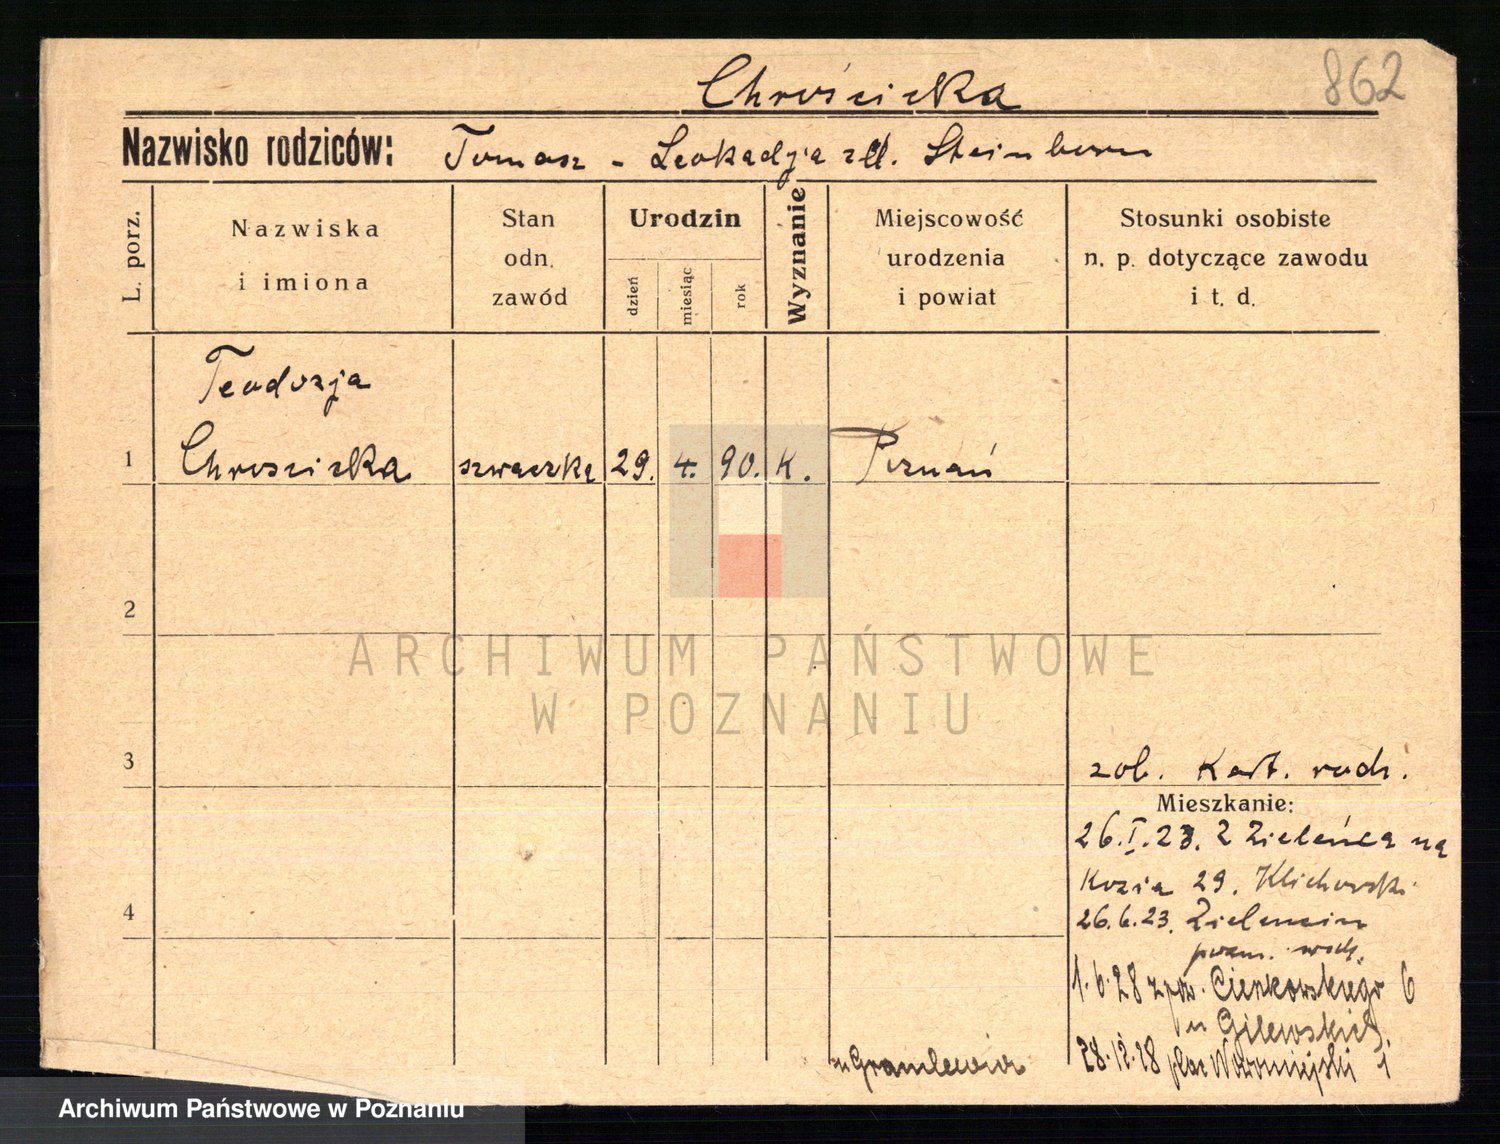 862
Chrościcka
Nazwisko rodziców: Tomasz - Leokadja zd. Steinborn
L. porz.
Nazwiska
i imiona
Stan
odn.
zawód
Urodzin
dzień
miesiąc
rok
Wyznanie
Miejscowość
urodzenia
i powiat
Stosunki osobiste
n. p. dotyczące zawodu
i t. d.
Teodozja
1 Chrościcka szwaczka 29. 4. 90. K. Poznań
2
ARCHIWUM PAŃSTWOWE
W POZNANIU
3
zob. Kart. rodz.
Mieszkanie:
26.I.23. Z Zieleńca na
Kozia 29. Klichowski
4
26.6.23. Zieleniec
pozn. wsch.
1.6.28 z poz. Cieszkowskiego 6
u Gilewskich
28.12.28 plac Wolomiejski 1
u
Archiwum Państwowe w Poznaniu